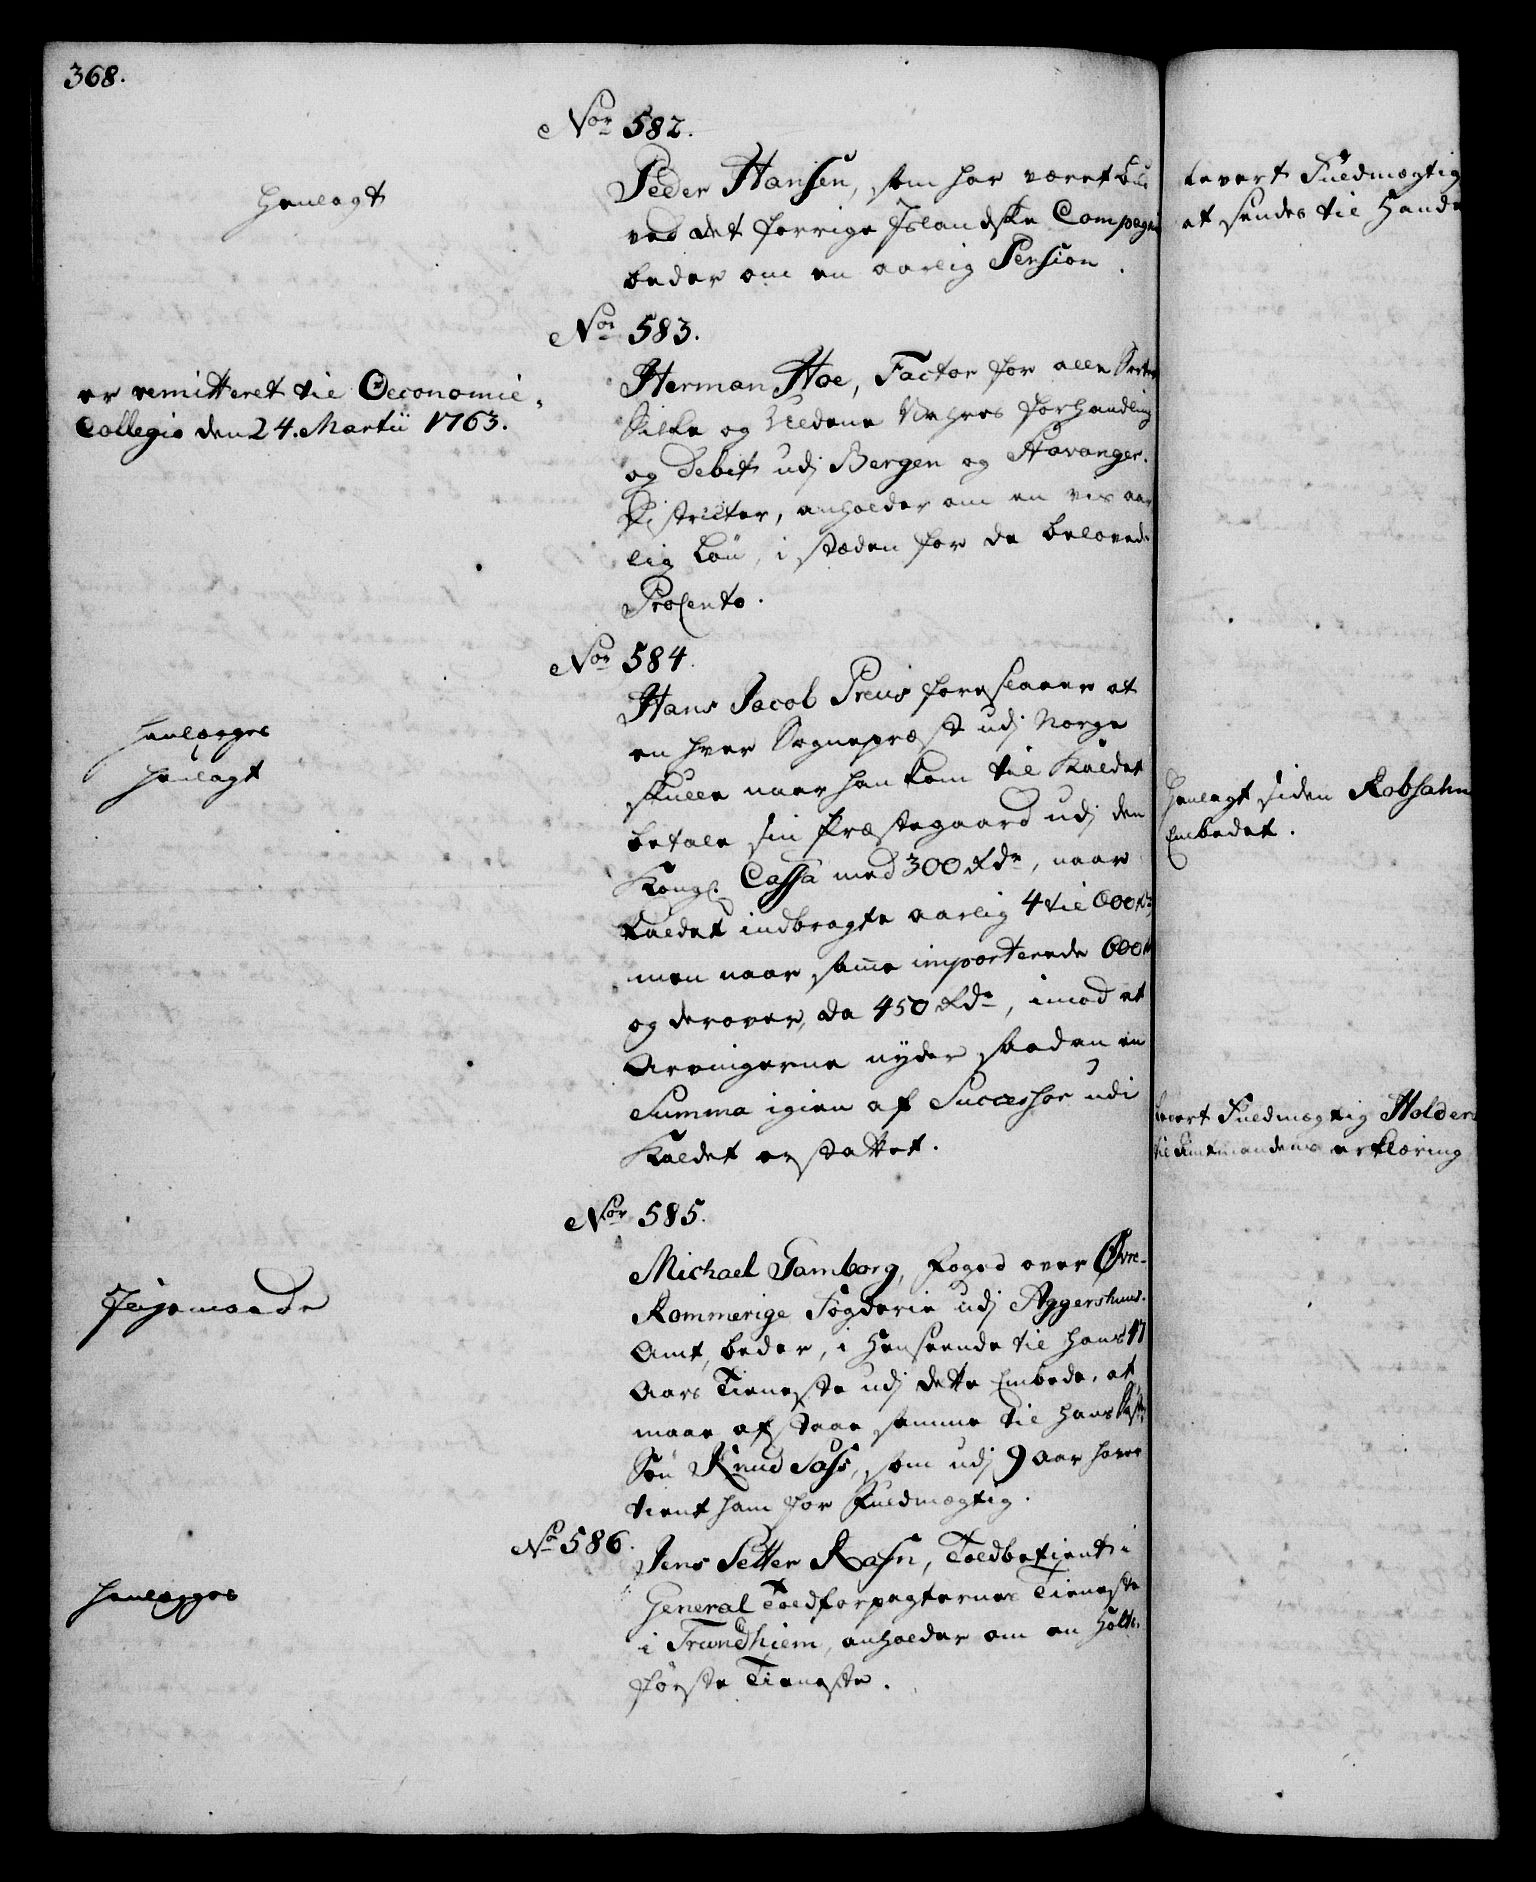 368.
Nor 582.
Henlagt
Peder Hansen, som har været
ved det forrige Islandske Compagni
beder om en aarlig Pension.
Nor 583.
er remitteret til Oeconomie-
Collegio den 24. Martii 1763.
Herman Hoe, Factor for alle Sorter
Silke og Uldene Vahres forhandling
og Debit udj Bergen og Stavanger-
Districter, anholder om en vis aar
lig Løn, i stæden for de belovede
Procento.
Nor 584.
Henlægges
Henlagt
Hans Jacob Preus foreslaaer at
en hver Sognepræst udj Norge
skulle naar han kom til Kaldet
betale sin Præstegaard udj den
Kongl. Cassa med 300 Rdr, naar
Kaldet indbragte aarlig 4 til 600 Rdr
men naar samme importerede 600
og derover, da 450 Rdr, imod at
Arvingerne nyder saadan en
Summa igien af Successor udi
Kaldet erstattet.
Nor 585.
Michael Tamborg, Foged over Øvre-
Rommerige Fogderie udj Aggershuus-
Amt, beder, i Henseende til hans 17
Aars Tieneste udj dette Embede, at
maae afstaae samme til hans
Søn Knud Sass, som udj 9 Aar haver
tient ham for Fuldmægtig.
No 586.
Henlægges
Jens Petter Rasn, Toldbetient i
General Toldforpagternes Tieneste
i Trundhiem, anholder om en
første Tieneste.
Levert Fuldmægtig
at sendes til
Henlagt siden Robsahm
Embedet.
Levert Fuldmægtig Holder
til Amtmandens erklæring